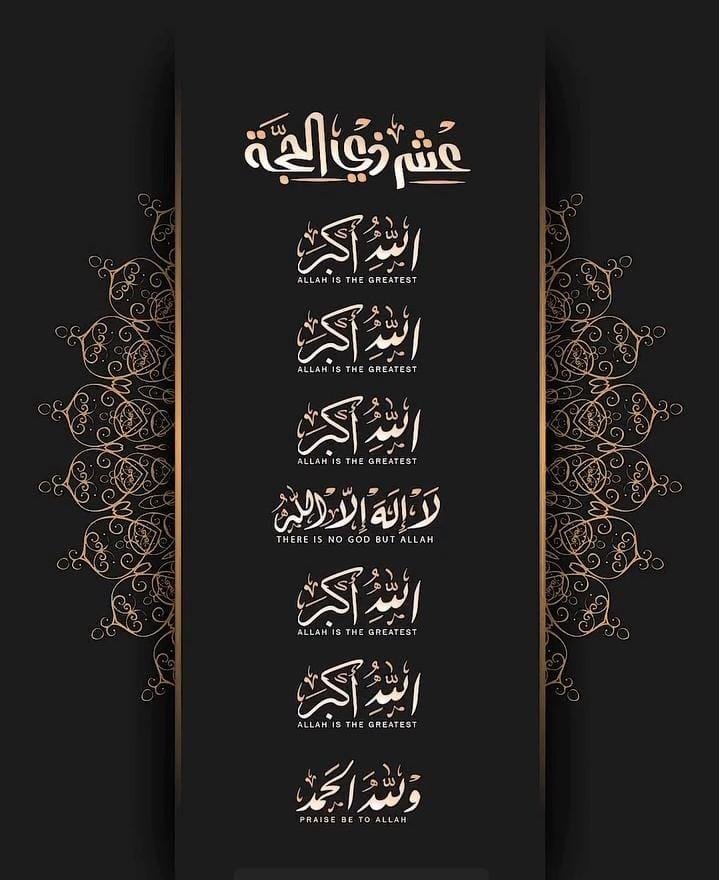 عشر ذي الحجة
الله أكبر
ALLAH IS THE GREATEST
الله أكبر
ALLAH IS THE GREATEST
الله أكبر
ALLAH IS THE GREATEST
لا إله إلا الله
THERE IS NO GOD BUT ALLAH
الله أكبر
ALLAH IS THE GREATEST
الله أكبر
ALLAH IS THE GREATEST
ولله الحمد
PRAISE BE TO ALLAH